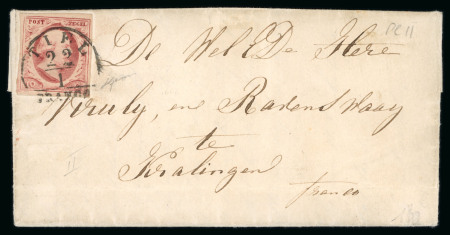 POST ZEGEL
TIEL
22
1
FRANCO
De Wel Ed. Here
Pruly, en Ravenswaay
te
Kralingen
franco
II